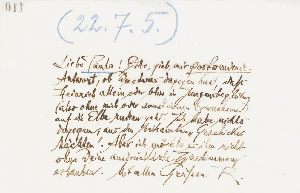 (22. 7. 5.)
Liebe Paula! Bitte, gieb mir postwendend
Antwort, ob Du etwas dagegen hast, daß
Heinrich allein oder blos in Jungenbegleitung
(also ohne mich oder sonst einen Erwachsenen)
auf die Elbe rudern geht. Ich habe nichts
dagegen, aus den
Aber ich möchte es ihm nicht
ohne Deine ausdrückliche Zustimmung
erlauben. Mit allen Grüßen